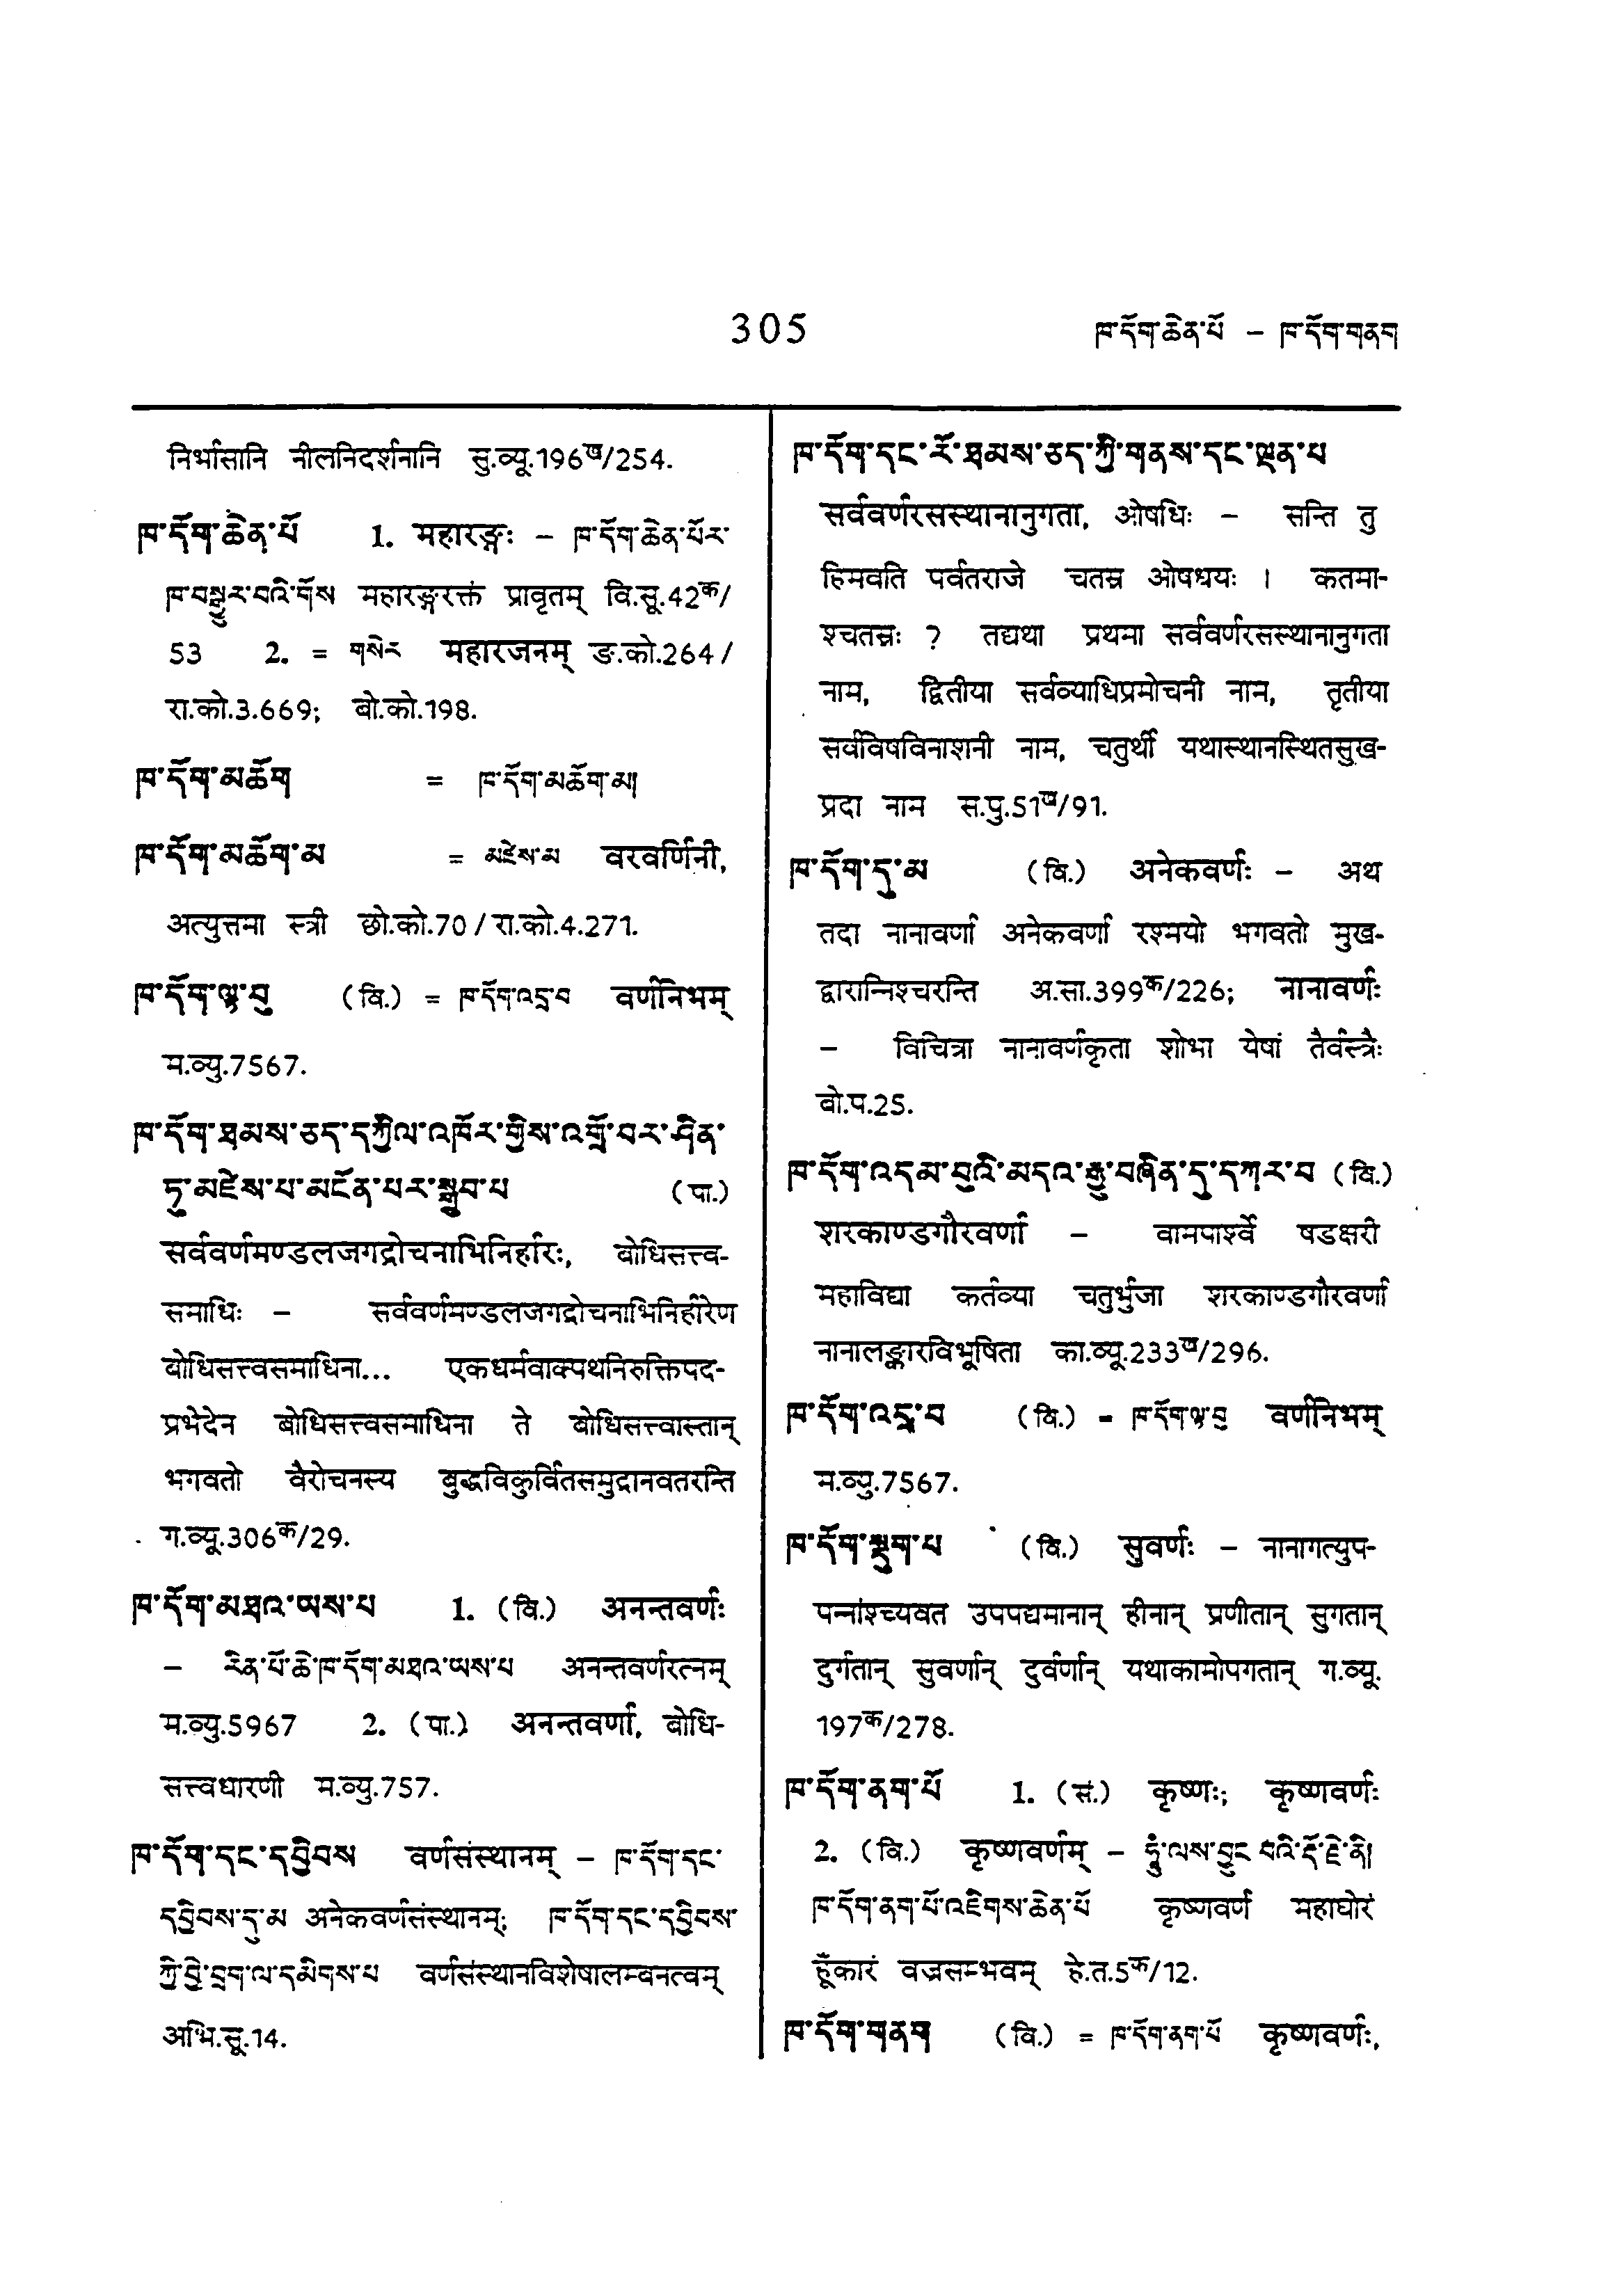 305 ཁ་དོག་ཆེན་པོ – ཁ་དོག་གནག
निर्भासानि नीलनिदर्शनानि सु.व्यू.196ख/254.
ཁ་དོག་ཆེན་པོ 1. महारङ्गः – ཁ་དོག་ཆེན་པོར་
ཁ་བསྒྱུར་བའི་གོས महारङ्गरक्तं प्रावृतम् वि.सू.42क/
53 2. = གསེར महारजनम् ङ.को.264/
रा.को.3.669; बो.को.198.
ཁ་དོག་མཆོག = ཁ་དོག་མཆོག་མ།
ཁ་དོག་མཆོག་མ = མཛེས་མ वरवर्णिनी,
अत्युत्तमा स्त्री छो.को.70/रा.को.4.271.
ཁ་དོག་ལྟ་བུ (वि.) = ཁ་དོག་འདྲ་བ वर्णनिभम्
म.व्यु.7567.
ཁ་དོག་ཐམས་ཅད་དཀྱིལ་འཁོར་གྱིས་འགྲོ་བར་ཤིན་
ཏུ་མཛེས་པ་མངོན་པར་སྒྲུབ་པ (पा.)
सर्ववर्णमण्डलजगद्रोचनाभिनिर्हारः, बोधिसत्त्व-
समाधिः – सर्ववर्णमण्डलजगद्रोचनाभिनिर्हारेण
बोधिसत्त्वसमाधिना... एकधर्मवाक्पथनिरुक्तिपद-
प्रभेदेन बोधिसत्त्वसमाधिना ते बोधिसत्त्वास्तान्
भगवतो वैरोचनस्य बुद्धविकुर्वितसमुद्रानवतरन्ति
ग.व्यू.306क/29.
ཁ་དོག་མཐའ་ཡས་པ 1. (वि.) अनन्तवर्णः
– རིན་པོ་ཆེ་ཁ་དོག་མཐའ་ཡས་པ अनन्तवर्णरत्नम्
म.व्यु.5967 2. (पा.) अनन्तवर्णा, बोधि-
सत्त्वधारणी म.व्यु.757.
ཁ་དོག་དང་དབྱིབས वर्णसंस्थानम् – ཁ་དོག་དང་
དབྱིབས་དུ་མ अनेकवर्णसंस्थानम्; ཁ་དོག་དང་དབྱིབས་
ཀྱི་བྱེ་བྲག་ལ་དམིགས་པ वर्णसंस्थानविशेषालम्बनत्वम्
अभि.सू.14.
ཁ་དོག་དང་རོ་ཐམས་ཅད་ཀྱི་གནས་དང་ལྡན་པ
सर्ववर्णरसस्थानानुगता, ओषधिः – सन्ति तु
हिमवति पर्वतराजे चतस्र ओषधयः । कतमा-
श्चतस्रः ? तद्यथा प्रथमा सर्ववर्णरसस्थानानुगता
नाम, द्वितीया सर्वव्याधिप्रमोचनी नाम, तृतीया
सर्वविषविनाशनी नाम, चतुर्थी यथास्थानस्थितसुख-
प्रदा नाम स.पु.51ख/91.
ཁ་དོག་དུ་མ (वि.) अनेकवर्णः – अथ
तदा नानावर्णा अनेकवर्णा रश्मयो भगवतो मुख-
द्वारान्निश्चरन्ति अ.सा.399क/226; नानावर्णः
– विचित्रा नानावर्णकृता शोभा येषां तैर्वस्त्रैः
बो.प.25.
ཁ་དོག་འདམ་བུའི་མདའ་རྒྱུ་བཞིན་དུ་དཀར་བ (वि.)
शरकाण्डगौरवर्णा – वामपार्श्वे षडक्षरी
महाविद्या कर्तव्या चतुर्भुजा शरकाण्डगौरवर्णा
नानालङ्कारविभूषिता का.व्यू.233ख/296.
ཁ་དོག་འདྲ་བ (वि.) = ཁ་དོག་ལྟ་བུ वर्णनिभम्
म.व्यु.7567.
ཁ་དོག་སྡུག་པ (वि.) सुवर्णः – नानागत्युप-
पन्नांश्च्यवत उपपद्यमानान् हीनान् प्रणीतान् सुगतान्
दुर्गतान् सुवर्णान् दुर्वर्णान् यथाकामोपगतान् ग.व्यू.
197क/278.
ཁ་དོག་ནག་པོ 1. (सं.) कृष्णः; कृष्णवर्णः
2. (वि.) कृष्णवर्णम् – ཧཱུྃ་ལས་བྱུང་བའི་རྡོ་རྗེ་ནི།
ཁ་དོག་ནག་པོ་འཇིགས་ཆེན་པོ कृष्णवर्णं महाघोरं
हूँकारं वज्रसम्भवम् हे.त.5क/12.
ཁ་དོག་གནག (वि.) = ཁ་དོག་ནག་པོ कृष्णवर्णः,